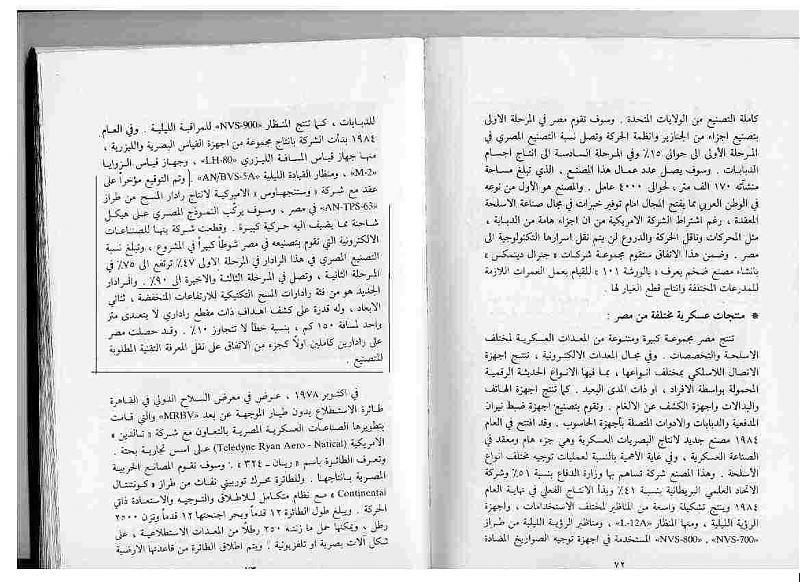 كاملة التصنيع من الولايات المتحدة . وسوف تقوم مصر في المرحلة الاولى
بتصنيع اجزاء من الجنازير وانظمة الحركة وتصل نسبة التصنيع المصري في
المرحلة الأولى الى حوالى ١٥٪ وفي المرحلة السادسة الى انتاج اجسام
الدبابات . وسوف يصل عدد عمال هذا المصنع ، الذي تبلغ مساحة
منشآته ١٧٠ الف متر ، لحوالى ٤٠٠٠ عامل . والمصنع هو الأول من نوعه
في الوطن العربي مما يفتح المجال امام توفير خبرات في مجال صناعة الاسلحة
المعقدة ، رغم اشتراط الشركة الامريكية من ان اجزاء هامة من الدبابة ،
مثل المحركات وناقل الحركة والدروع لن يتم نقل اسرارها التكنولوجية الى
مصر . وضمن هذا الاتفاق ستقوم مجموعة شركات « جنرال دينمكس »
بانشاء مصنع ضخم يعرف « بالورشة ١٠١ » للقيام بعمل العمرات اللازمة
للمدرعات المختلفة وانتاج قطع الغيار لها .
* منتجات عسكرية مختلفة من مصر :
تنتج مصر مجموعة كبيرة ومتنوعة من المعدات العسكرية لمختلف
الاسلحة والتخصصات . وفي مجال المعدات الالكترونية ، تنتج اجهزة
الاتصال اللاسلكي بمختلف انواعها ، بما فيها الانواع الحديثة الرقمية
المحمولة بواسطة الافراد ، او ذات المدى البعيد . كما تنتج اجهزة الهاتف
والبدالات واجهزة الكشف عن الالغام . وتقوم بتصنيع اجهزة ضبط نيران
المدفعية والدبابات والادوات المتصلة بأجهزة الحاسوب . وقد افتتح في العام
١٩٨٤ مصنع جديد لانتاج البصريات العسكرية وهي جزء هام ومعقد في
الصناعة العسكرية ، وفي غاية الاهمية بالنسبة لعمليات توجيه مختلف انواع
الأسلحة . وهذا المصنع شركة تساهم بها وزارة الدفاع بنسبة ٥١٪ وشركة
الاتحاد العلمي البريطانية بنسبة ٤١٪ وبدأ الانتاج الفعلي في نهاية العام
١٩٨٤ وينتج تشكيلة واسعة من المناظير لمختلف الاستخدامات ، واجهزة
الرؤية الليلية ، ومنها المنظار «L-12A» ، ومناظير الرؤية الليلية من طراز
«NVS-700» ، «NVS-800» المستخدمة في اجهزة توجيه الصواريخ المضادة
٧٢
للدبابات ، كما تنتج المنظار «NVS-900» للمراقبة الليلية . وفي العام
١٩٨٤ بدأت الشركة بانتاج مجموعة من اجهزة القياس البصرية والليزرية ،
منها جهاز قياس المسافة الليزري «LH-80» ، وجهاز قياس الزوايا
«M-2» ، ومنظار القيادة الليلية «AN/BVS-5A» . وتم التوقيع مؤخراً على
عقد مع شركة « وستنجهاوس » الاميركية لانتاج رادار المسح من طراز
«AN-TPS-63» في مصر ، وسوف يركب النموذج المصري على هيكل
شاحنة مما يضيف اليه حركية كبيرة . وقطعت شركة بنها للصناعات
الالكترونية التي تقوم بتصنيعه في مصر شوطاً كبيراً في المشروع ، وتبلغ نسبة
التصنيع المصري في هذا الرادار في المرحلة الاولى ٤٧٪ ترتفع الى ٧٥٪ في
المرحلة الثانية ، وتصل في المرحلة الثالثة والاخيرة الى ٩٠٪ . والرادار
الجديد هو من فئة رادارات المسح التكتيكية للارتفاعات المنخفضة ، ثنائي
الابعاد ، وله قدرة على كشف اهداف ذات مقطع راداري لا يتعدى متر
واحد لمسافة ١٥٠ كم ، بنسبة خطأ لا تتجاوز ١٠٪ . وقد حصلت مصر
على رادارين كاملين اولاً كجزء من الاتفاق على نقل المعرفة التقنية المطلوبة
للتصنيع .
في اكتوبر ١٩٧٨ ، عرض في معرض السلاح الدولي في القاهرة
طائرة الاستطلاع بدون طيار الموجهة عن بعد «MRBV» والتي قامت
بتطويرها الصناعات العسكرية المصرية بالتعاون مع شركة « تالدين »
الامريكية (Teledyne Ryan Aero - Natical) على اسس تجارية بحتة .
وتعرف الطائرة باسم « ريان - ٣٢٤ » . وسوف تقوم المصانع الحربية
المصرية بانتاجها . وللطائرة محرك توربيني نفاث من طراز « كونتننتال
Continental » مع نظام متكامل للاطلاق والتوجيه والاستعادة ذاتي
الحركة . ويبلغ طول الطائرة ١٢ قدماً وبحر اجنحتها ١٢ قدماً وتزن ٢٥٠٠
رطل ، ويمكنها حمل ما زنته ٢٥٠ رطلاً من المعدات الاستطلاعية ، على
شكل آلات بصرية او تلفزيونية . ويتم اطلاق الطائرة من قاعدتها الارضية